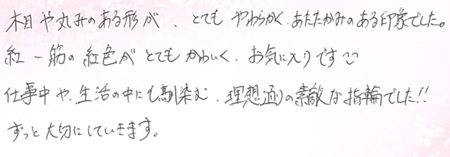 木目や丸みのある形が、とてもやわらかく、あたたかみのある印象でした。
紅一筋の紅色がとてもかわいく、お気に入りです
仕事中や、生活の中にも馴染む、理想通りの素敵な指輪でした!!
ずっと大切にしていきます。